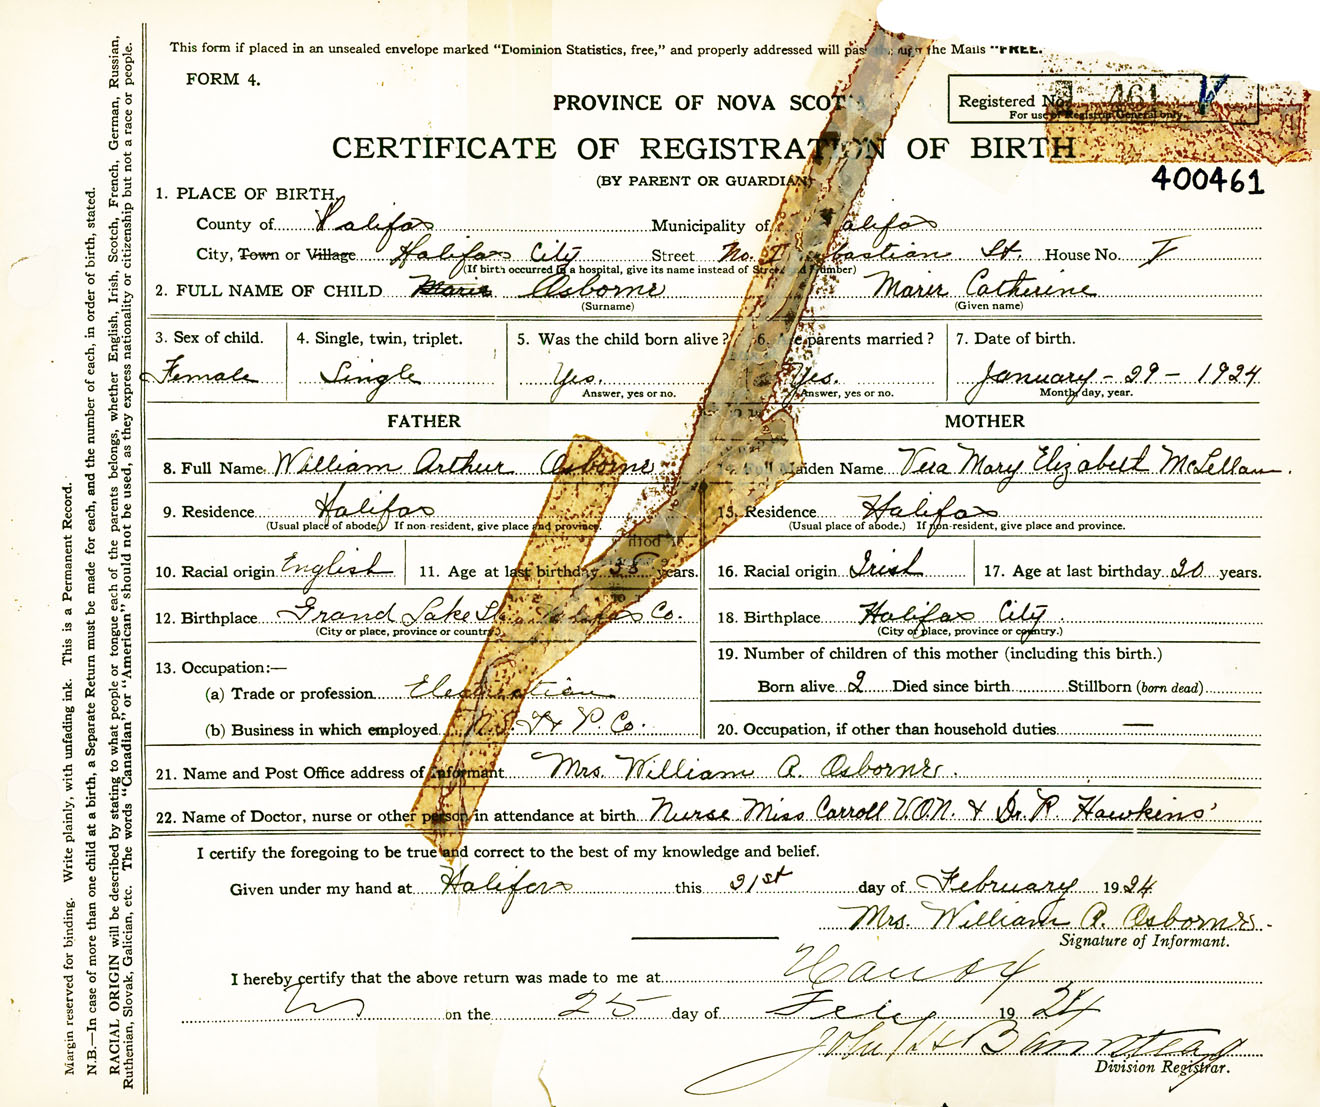 This form if placed in an unsealed envelope marked "Dominion Statistics, free," and properly addressed will pass through the Mails "FREE."
FORM 4.
PROVINCE OF NOVA SCOTIA
Registered No. 461
For use of Registrar General only.
CERTIFICATE OF REGISTRATION OF BIRTH
400461
(BY PARENT OR GUARDIAN)
1. PLACE OF BIRTH.
County of Halifax Municipality of Halifax
City, Town or Village Halifax City Street No. 7 Sebastian St. House No. 7
(If birth occurred in a hospital, give its name instead of Street and Number)
2. FULL NAME OF CHILD Marie Osborne Marie Catherine
(Surname) (Given name)
3. Sex of child. 4. Single, twin, triplet. 5. Was the child born alive? 6. Are parents married? 7. Date of birth.
Female Single Yes. Yes. January - 29 - 1924
Answer, yes or no. Answer, yes or no. Month, day, year.
FATHER MOTHER
8. Full Name William Arthur Osborne 14. Full Maiden Name Vera Mary Elizabeth McLellan.
9. Residence Halifax 15. Residence Halifax
(Usual place of abode.) If non-resident, give place and province. (Usual place of abode.) If non-resident, give place and province.
10. Racial origin English 11. Age at last birthday 38 years. 16. Racial origin Irish 17. Age at last birthday 20 years.
12. Birthplace Grand Lake Halifax Co. 18. Birthplace Halifax City.
(City or place, province or country.) (City or place, province or country.)
13. Occupation:— 19. Number of children of this mother (including this birth.)
(a) Trade or profession Electrician Born alive 2 Died since birth Stillborn (born dead)
(b) Business in which employed N.S.T & P. Co. 20. Occupation, if other than household duties —
21. Name and Post Office address of Informant Mrs. William A. Osborne.
22. Name of Doctor, nurse or other person in attendance at birth Nurse Miss Carroll V.O.N. & Dr. R Hawkins
I certify the foregoing to be true and correct to the best of my knowledge and belief.
Given under my hand at Halifax this 21st day of February 1924
Mrs. William A. Osborne.
Signature of Informant.
I hereby certify that the above return was made to me at Halifax
on the 25 day of Feb 1924
John
Division Registrar.
Margin reserved for binding. Write plainly, with unfading ink. This is a Permanent Record.
N.B.—In case of more than one child at a birth, a Separate Return must be made for each, and the number of each, in order of birth, stated.
RACIAL ORIGIN will be described by stating to what people or tongue each of the parents belongs, whether English, Irish, Scotch, French, German, Russian,
Ruthenian, Slovak, Galician, etc. The words "Canadian" or "American" should not be used, as they express nationality or citizenship but not a race or people.